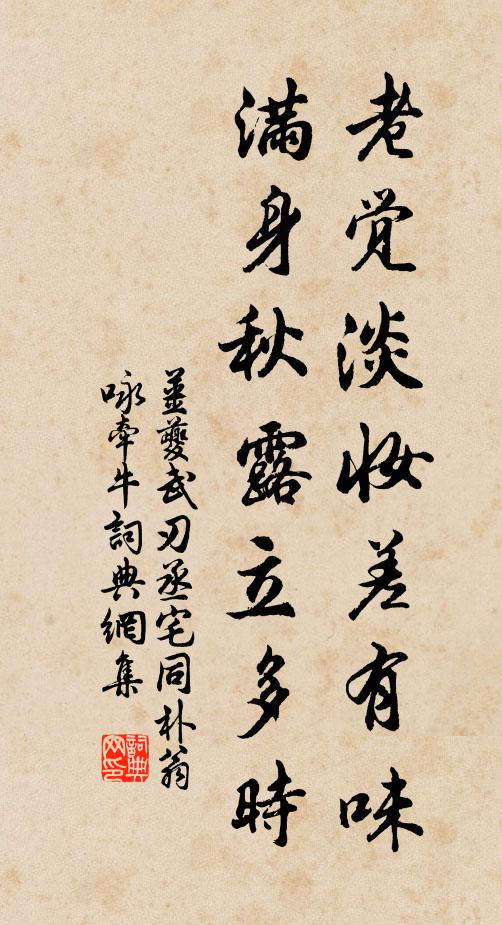 老觉淡妆差有味
满身秋露立多时
姜夔武刃丞宅同朴翁
咏牵牛詞典網集
詞典网印